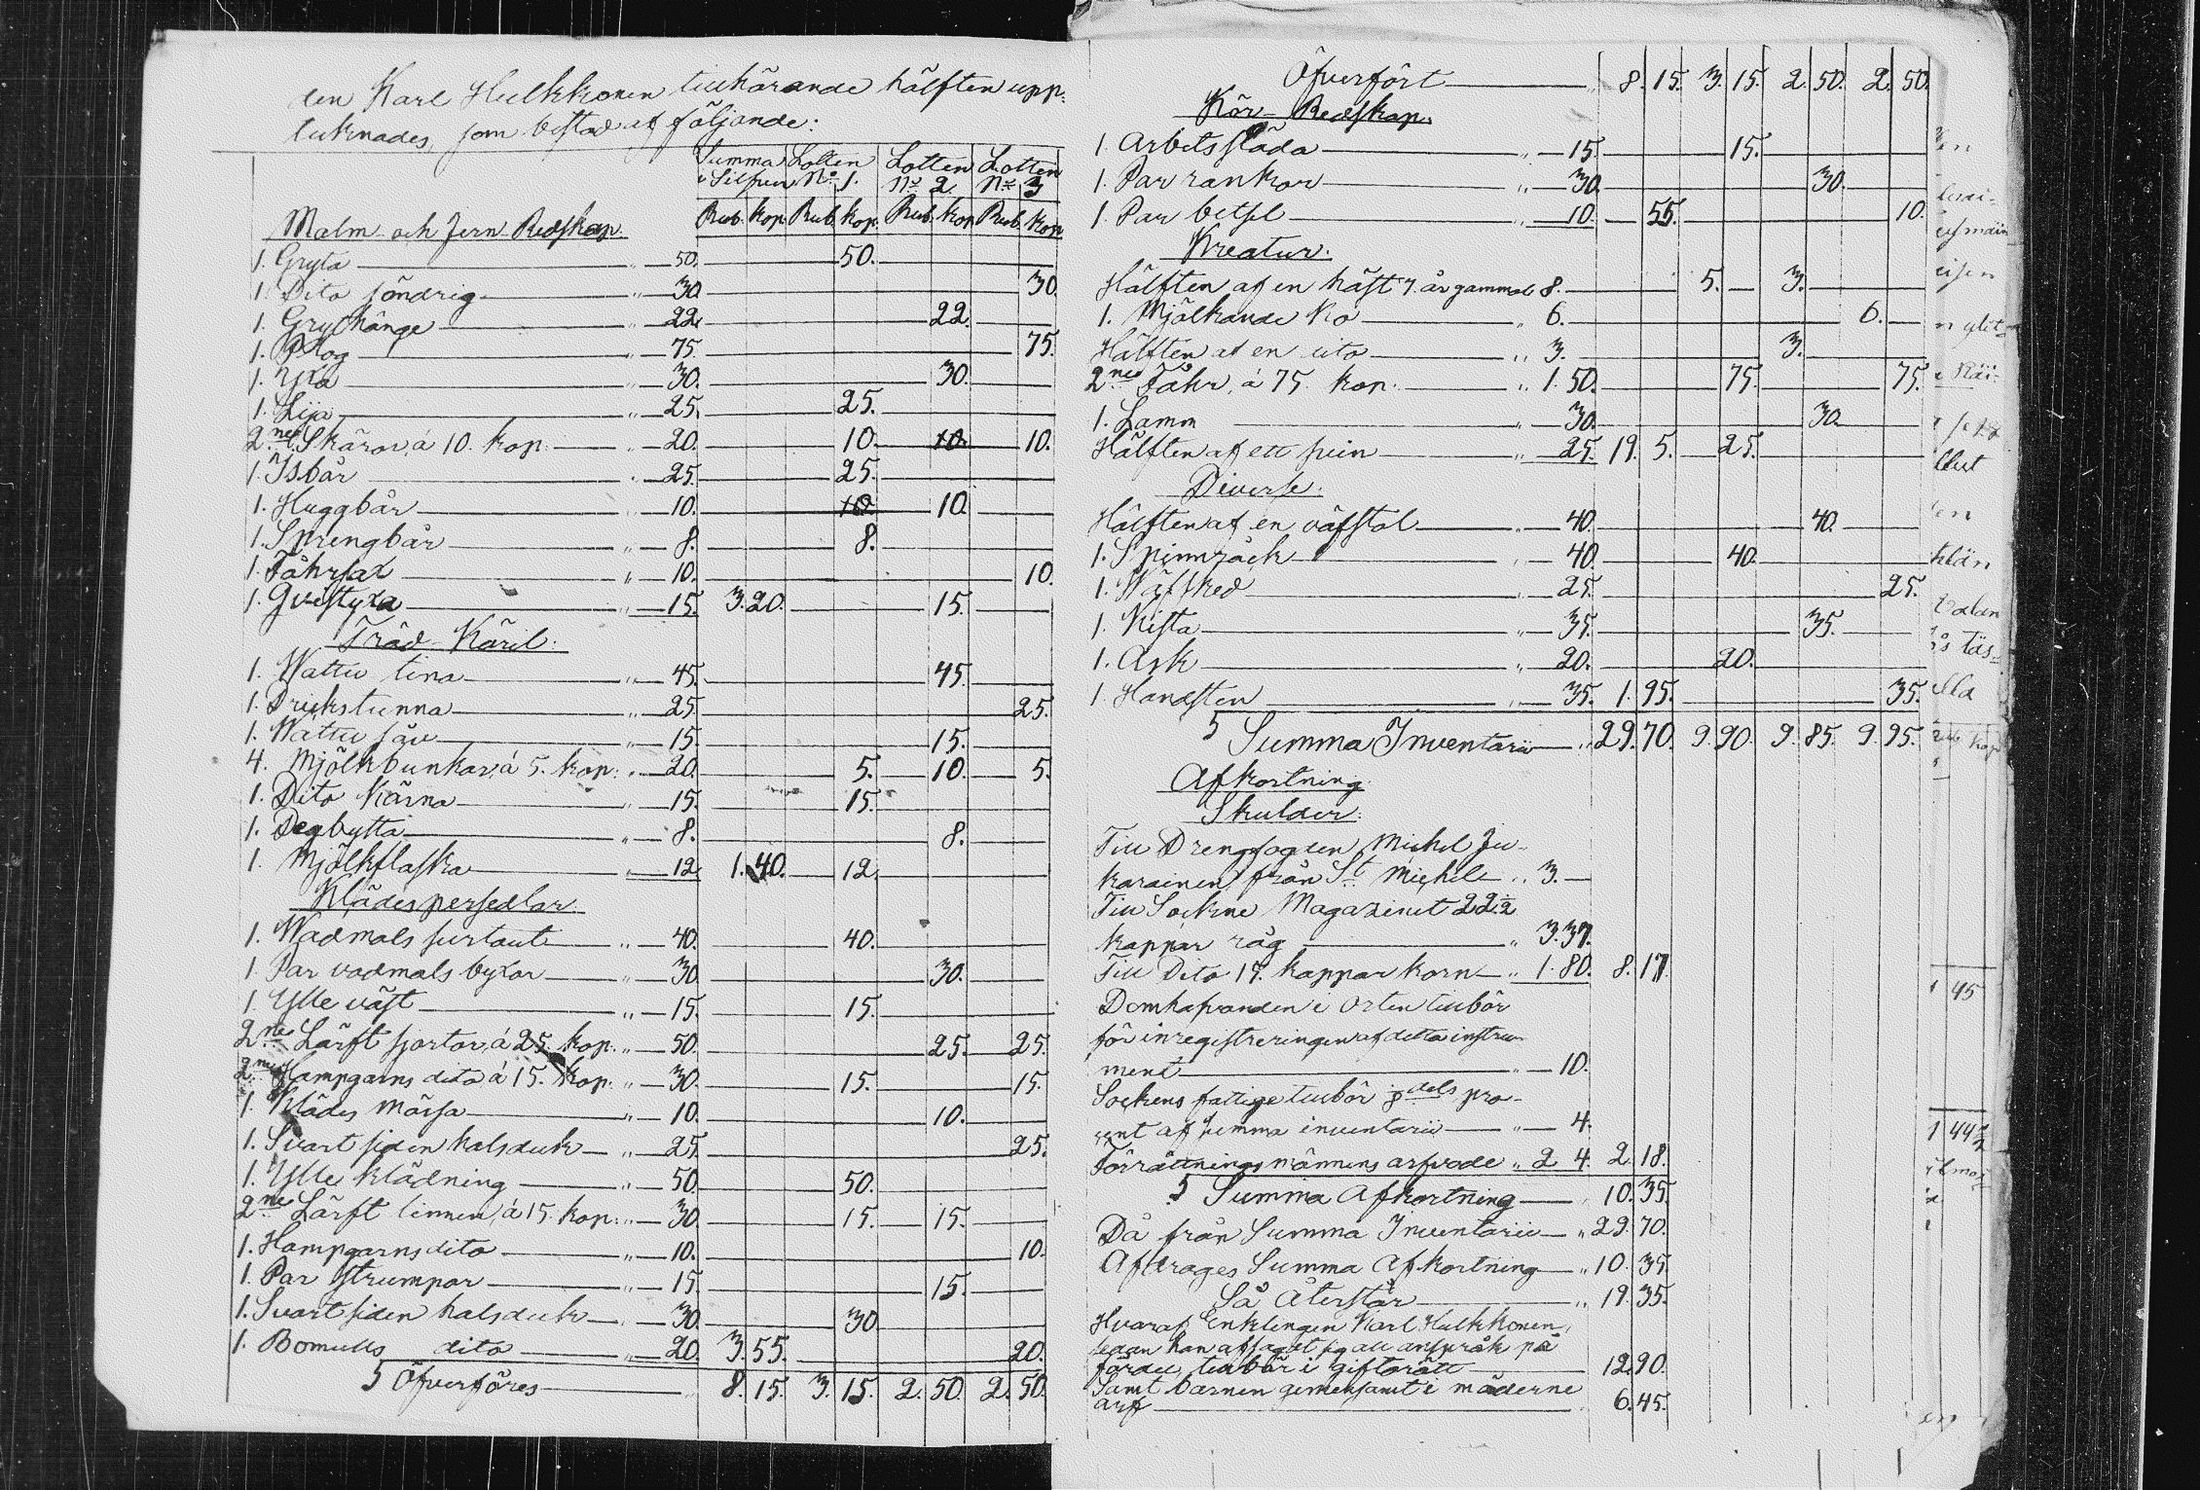 den Karl Hulkkonen tillhörande hälften upp-
teknades, som bestod af följande:
Summa Lotten Lotten Lotten
i Silfver No 1. No 2 No 3
Rub. Kop. Rub. Kop. Rub. Kop. Rub. Kop.
Malm och Jern Redskap.
1. Gryta " 50. 50.
1. Dito söndrig " 30 30
1. Grythänge " 22 22.
1. Plog " 75. 75.
1. Yxa " 30. 30.
1. Lija " 25. 25.
2ne Skäror, á 10. kop: " 20. 10 10 10.
1. Isbår " 25. 25.
1. Huggbår " 10. 10 10.
1. Sprengbår " 8. 8.
1. Fåhrsax " 10. 10.
1. Qvistyxa " 15. 3. 20. 15.
Träd Käril.
1. Wattu tina " 45. 45.
1. Drickstunna " 25. 25.
1. Wattu såu " 15. 15.
4. Mjölkbunkar, á 5. kop: " 20. 5. 10. 5.
1. Dito Kärna " 15. 15.
1. Degbytta " 8. 8.
1. Mjölkflaska " 12 1. 40. 12.
Klädespersedlar.
1. Wadmals surtout " 40. 40.
1. Par vadmals byxor " 30 30.
1 Ylle väst " 15. 15.
2ne Lärft sjortor, á 25. kop. " 50. 25. 25.
2ne Hampgarns dito á 15. kop: " 30. 15. 15.
1. Klädes mössa " 10. 10.
1. Svart siden halsduk " 25. 25.
1. Ylle klädning " 50. 50.
2ne Lärft linnen, á 15. kop: " 30 15. 15.
1. Hampgarns dito " 10. 10.
1. Par strumpor " 15. 15.
1. Svart siden halsduk " 30. 30
1. Bomulls dito " 20. 3. 55. 20.
S Öfverföres " 8. 15. 3. 15. 2. 50. 2. 50.
Öfverfört " 8. 15. 3. 15. 2. 50. 2. 50.
Kör Redskap.
1. Arbetssläda " 15. 15.
1. Par rankor " 30. 30.
1. Par betsel " 10. 55. 10.
Kreatur.
Hälften af en häst 7. år gammal 8. 5. 3.
1. Mjölkande Ko " 6. 6.
Hälften af en dito " 3. 3.
2ne Fåhr, á 75. kop. " 1. 50. 75. 75.
1. Lamm " 30. 30.
Hälften af ett svin " 25. 19. 5. 25.
Diverse.
Hälften af en väfstol " 40. 40.
1. Spinnråck " 40. 40.
1. Wäfsked " 25. 25.
1. Kista " 35. 35.
1. Ask " 20. 20.
1 Handsten " 35. 1. 95. 35.
S Summa Inventarii " 29. 70. 9. 90. 9. 85. 9. 95.
Afkortning.
Skulder.
Till Drengfogden Michel Ju-
karainen från St Michels " 3.
Till Sockne Magazinet 22 1/2
kappar råg " 3. 37.
Till Dito 17. kappar korn " 1. 80. 8. 17.
Domhafvanden i Orten tillbör
för inregistreringen af detta instru-
ment " 10.
Sockens fattige tillbör dels pro-
cent af summa inventarii " 4.
Förrättningsmännens arfvode " 2 4. 2. 18.
S Summa Afkortning " 10. 35.
Då från Summa Inventarii " 29. 70.
Afdrages Summa Afkortning " 10. 35.
Så Återstår " 19. 35.
Hvaraf Enklingen Karl Hulkkonen,
sedan han afsagt sig all anspråk på
fördel, tillbör i giftorätt 12. 90.
Samt barnen gemensamt i möderne
arf 6. 45.